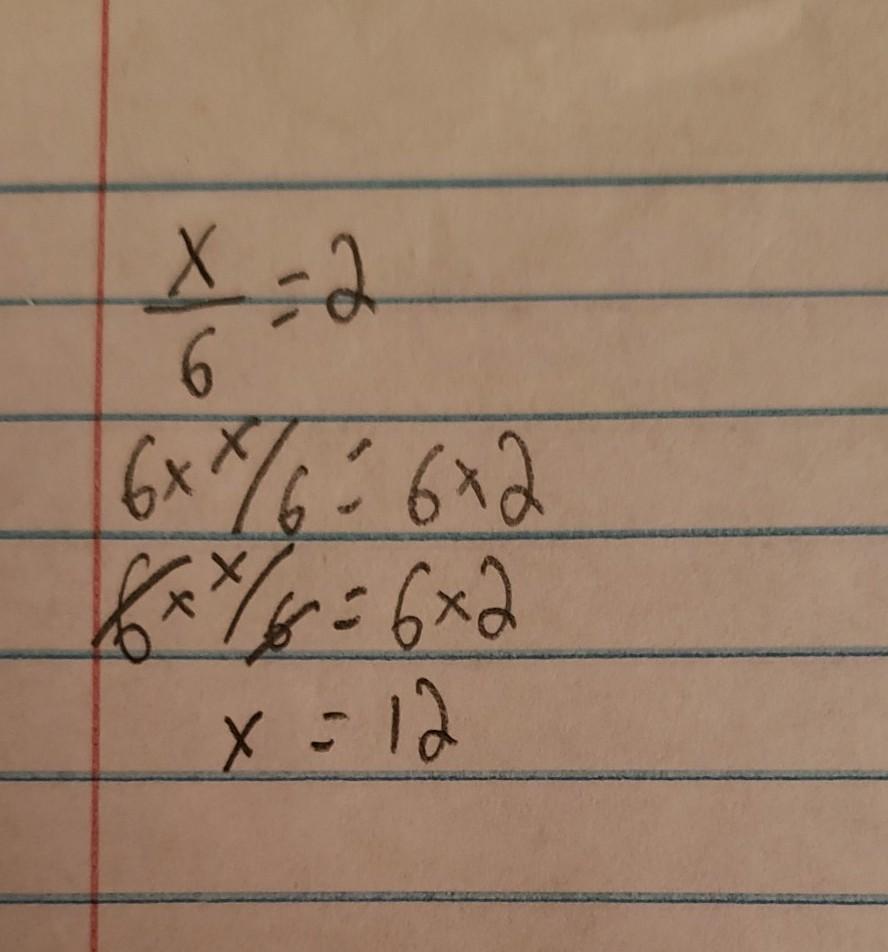 x/6 = 2
6 x x/6 = 6 x 2
6 x x/6 = 6 x 2
x = 12